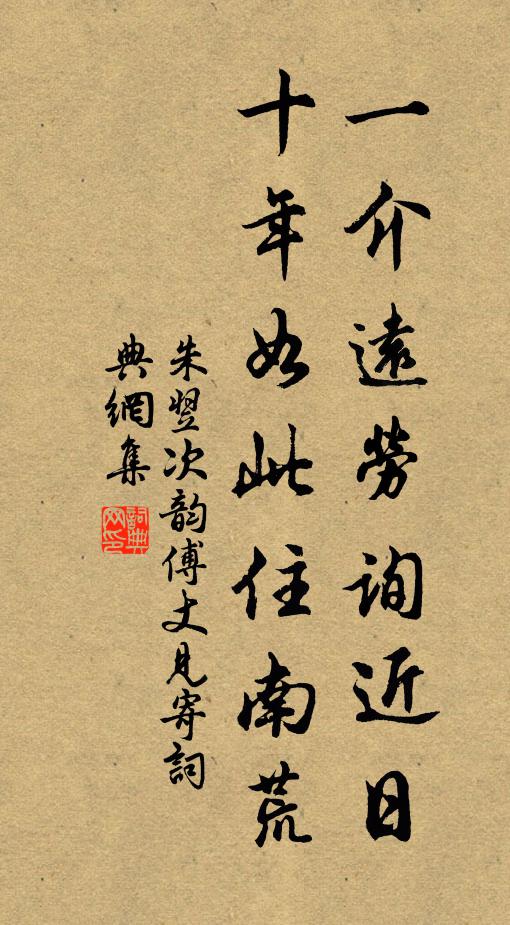 一介遠勞詢近日
十年如此住南荒
朱翌次韵傅丈見寄詞
典網集
詞典
网印